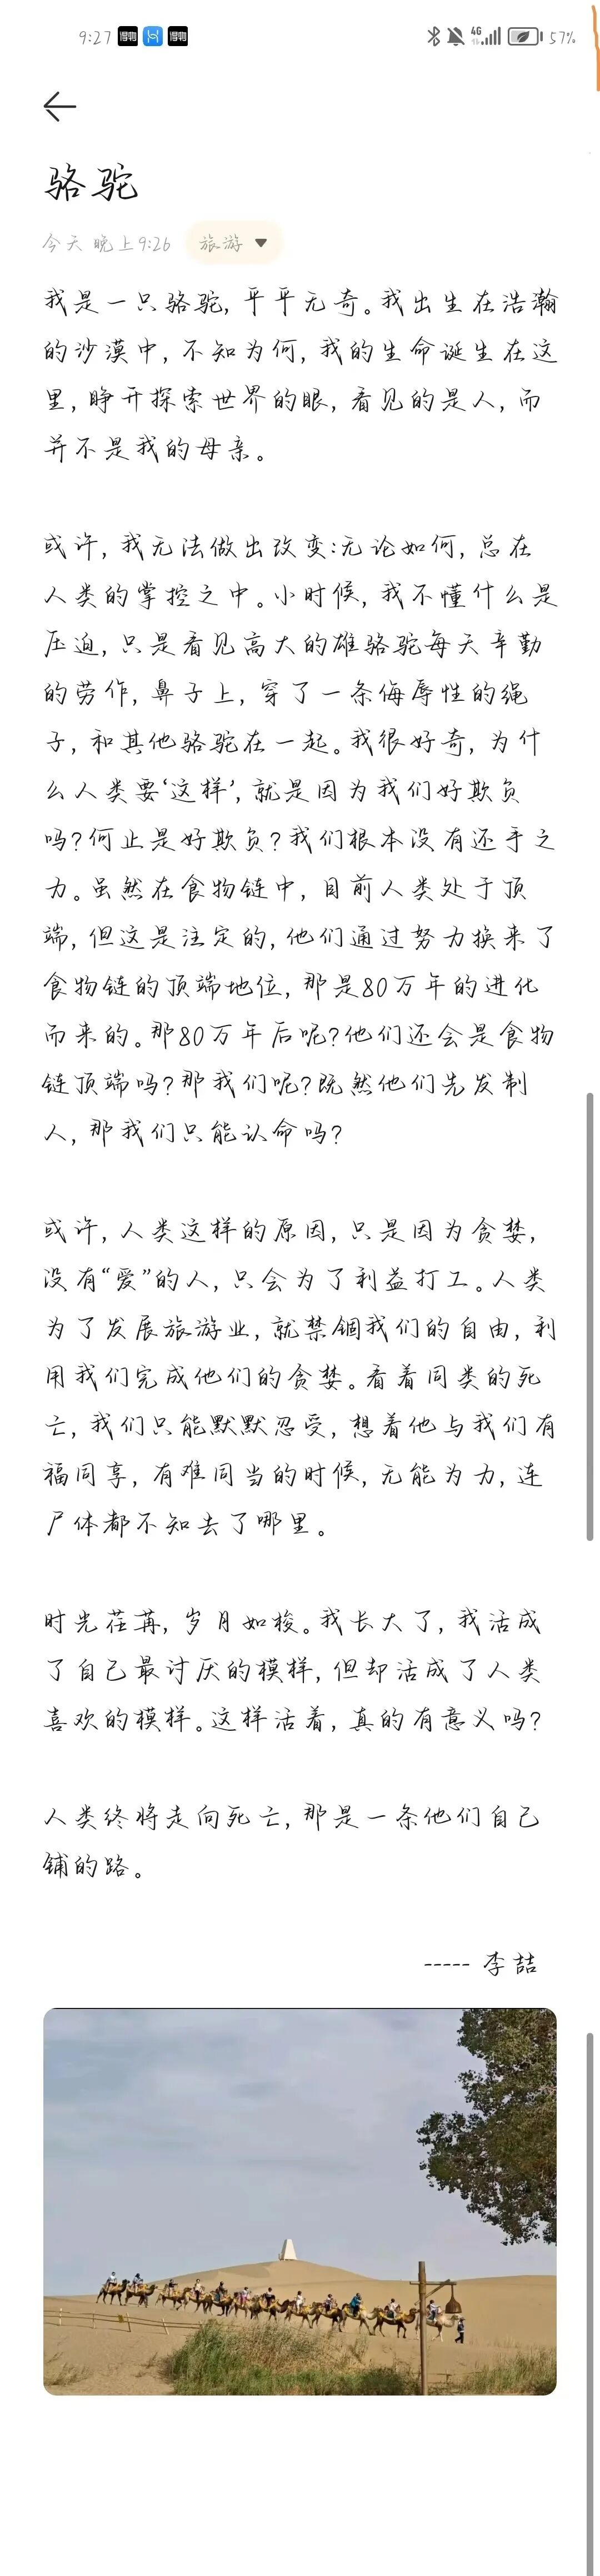 9:27 得物 得物 4G 57%
骆驼
今天 晚上9:26 旅游
我是一只骆驼，平平无奇。我出生在浩瀚
的沙漠中，不知为何，我的生命诞生在这
里，睁开探索世界的眼，看见的是人，而
并不是我的母亲。
或许，我无法做出改变：无论如何，总在
人类的掌控之中。小时候，我不懂什么是
压迫，只是看见高大的雄骆驼每天辛勤
的劳作，鼻子上，穿了一条侮辱性的绳
子，和其他骆驼在一起。我很好奇，为什
么人类要‘这样’，就是因为我们好欺负
吗？何止是好欺负？我们根本没有还手之
力。虽然在食物链中，目前人类处于顶
端，但这是注定的，他们通过努力换来了
食物链的顶端地位，那是80万年的进化
而来的。那80万年后呢？他们还会是食物
链顶端吗？那我们呢？既然他们先发制
人，那我们只能认命吗？
或许，人类这样的原因，只是因为贪婪，
没有“爱”的人，只会为了利益打工。人类
为了发展旅游业，就禁锢我们的自由，利
用我们完成他们的贪婪。看着同类的死
亡，我们只能默默忍受，想着他与我们有
福同享，有难同当的时候，无能为力，连
尸体都不知去了哪里。
时光荏苒，岁月如梭。我长大了，我活成
了自己最讨厌的模样，但却活成了人类
喜欢的模样。这样活着，真的有意义吗？
人类终将走向死亡，那是一条他们自己
铺的路。
----- 李喆